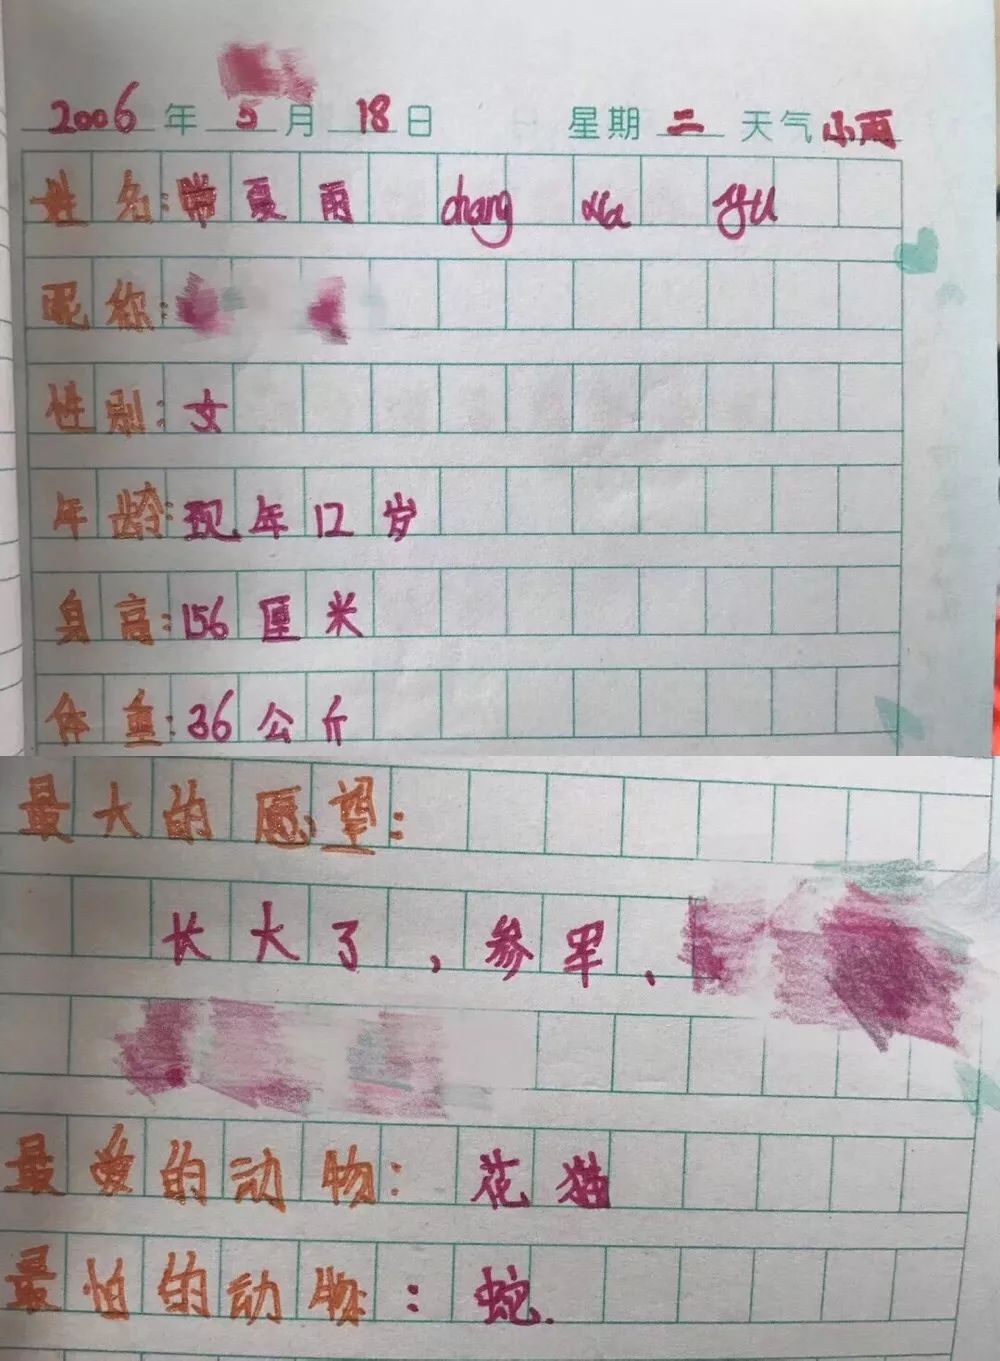 2006年5月18日 星期二 天气小雨
姓名:常夏雨 chang xia yu
昵称:
性别:女
年龄:现年12岁
身高:156厘米
体重:36公斤
最大的愿望:
长大了,参军、
最爱的动物: 花猫
最怕的动物: 蛇.